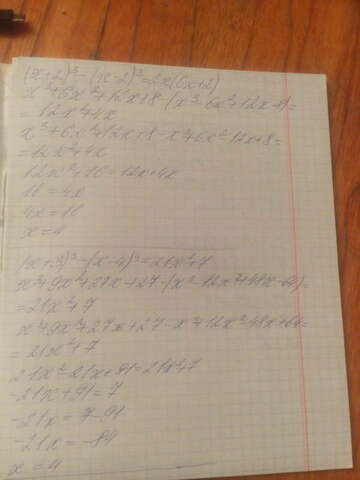 (x+2)³-(x-2)³=2x(6x+2)
x³+6x²+12x+8-(x³-6x²+12x-8)=
=12x²+4x
x³+6x²+12x+8-x³+6x²-12x+8=
=12x²+4x
12x²+16=12x+4x
16=4x
4x=16
x=4
(x+3)³-(x-4)³=21x²+7
x³+9x²+27x+27-(x³-12x²+48x-64)=
=21x²+7
x³+9x²+27x+27-x³+12x²-48x+64=
=21x²+7
21x²-21x+91=21x²+7
-21x+91=7
-21x=7-91
-21x=-84
x=4